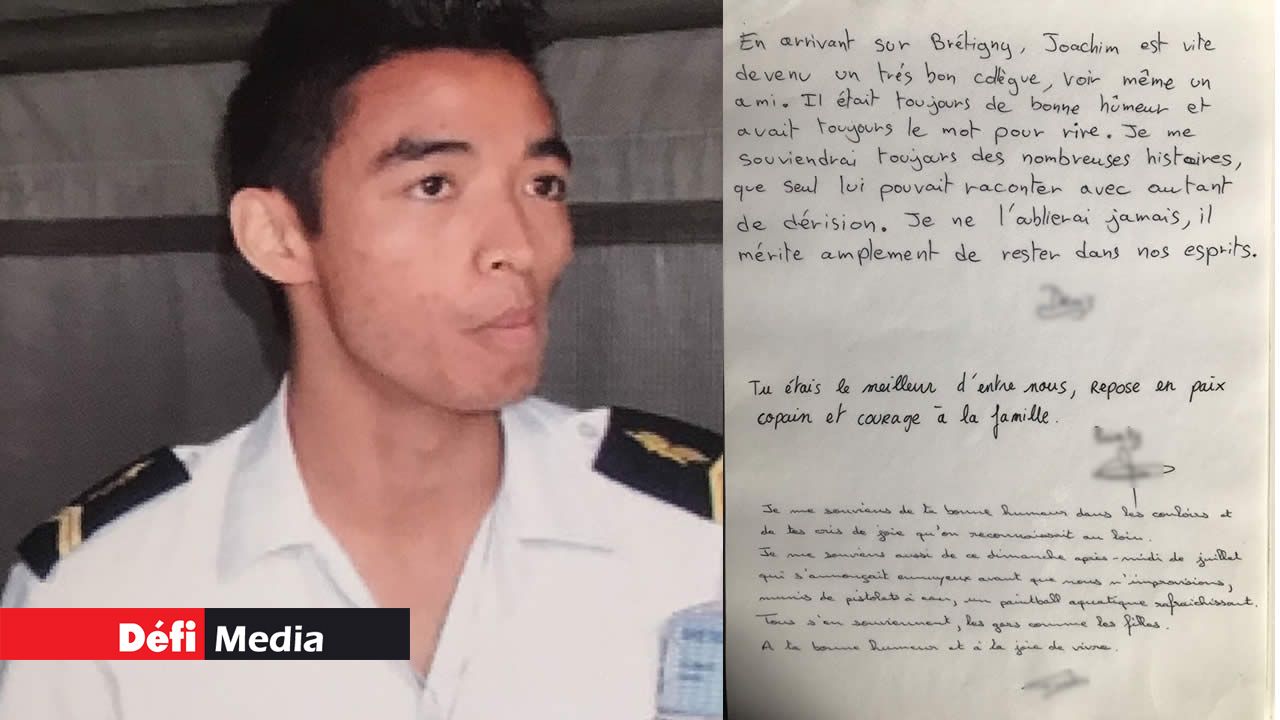 En arrivant sur Brétigny, Joachim est vite
devenu un trés bon collègue, voir même un
ami. Il était toujours de bonne hûmeur et
avait toujours le mot pour rire. Je me
souviendrai toujours des nombreuses histoires,
que seul lui pouvait raconter avec autant
de dérision. Je ne l'oublierai jamais, il
mérite amplement de rester dans nos esprits.
Tu étais le meilleur d'entre nous, repose en paix
copain et courage à la famille.
Je me souviens de ta bonne humeur dans les couloirs et
de tes cris de joie qu'on reconnaissait au loin.
Je me souviens aussi de ce dimanche après-midi de juillet
qui s'annonçait ennuyeux avant que nous n'improvisions,
munis de pistolets à eau, un paintball aquatique rafraichissant.
Tous s'en souviennent, les gars comme les filles.
A ta bonne humeur et à la joie de vivre.
Défi Media